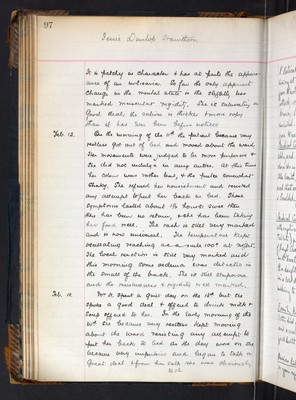 97
Jessie Dunlop
It is patchy in character & has at parts the appear-
ance of an urticaria. So far the only apparent
change in the mental state is the slightly less
marked muscular rigidity. She is salivating a
good deal, the saliva is thicker & more ropy
than it has been before noticed
Feb. 12. On the morning of the 11th the patient became very
restless got out of bed and moved about the ward,
her movements were judged to be more purposive &
she did not indulge in any antics. At this time
her colour was rather bad, & the pulse somewhat
shaky. She refused her nourishment and resisted
any attempt to put her back to bed. These
symptoms lasted about 1½ hours. Since then
there has been no return, & she has been taking
her food well. The rash is still very marked
and is now universal. The temperature keeps
oscillating reaching as a rule 100° at night.
The local reaction is still very marked and
this morning some oedema was detectable in
the small of the back. She is still stuporose
and the resistiveness & rigidity well marked.
Feb. 18. spent a quiet day on the 12th but she
spoke a good deal & offered to drink milk &
soup offered to her. In the early morning of the
she became very restless kept moving
about the ward resisting any attempt to
put her back to bed as the day wore on she
became very impulsive and began to talk a
great deal & from her talk she was obviously